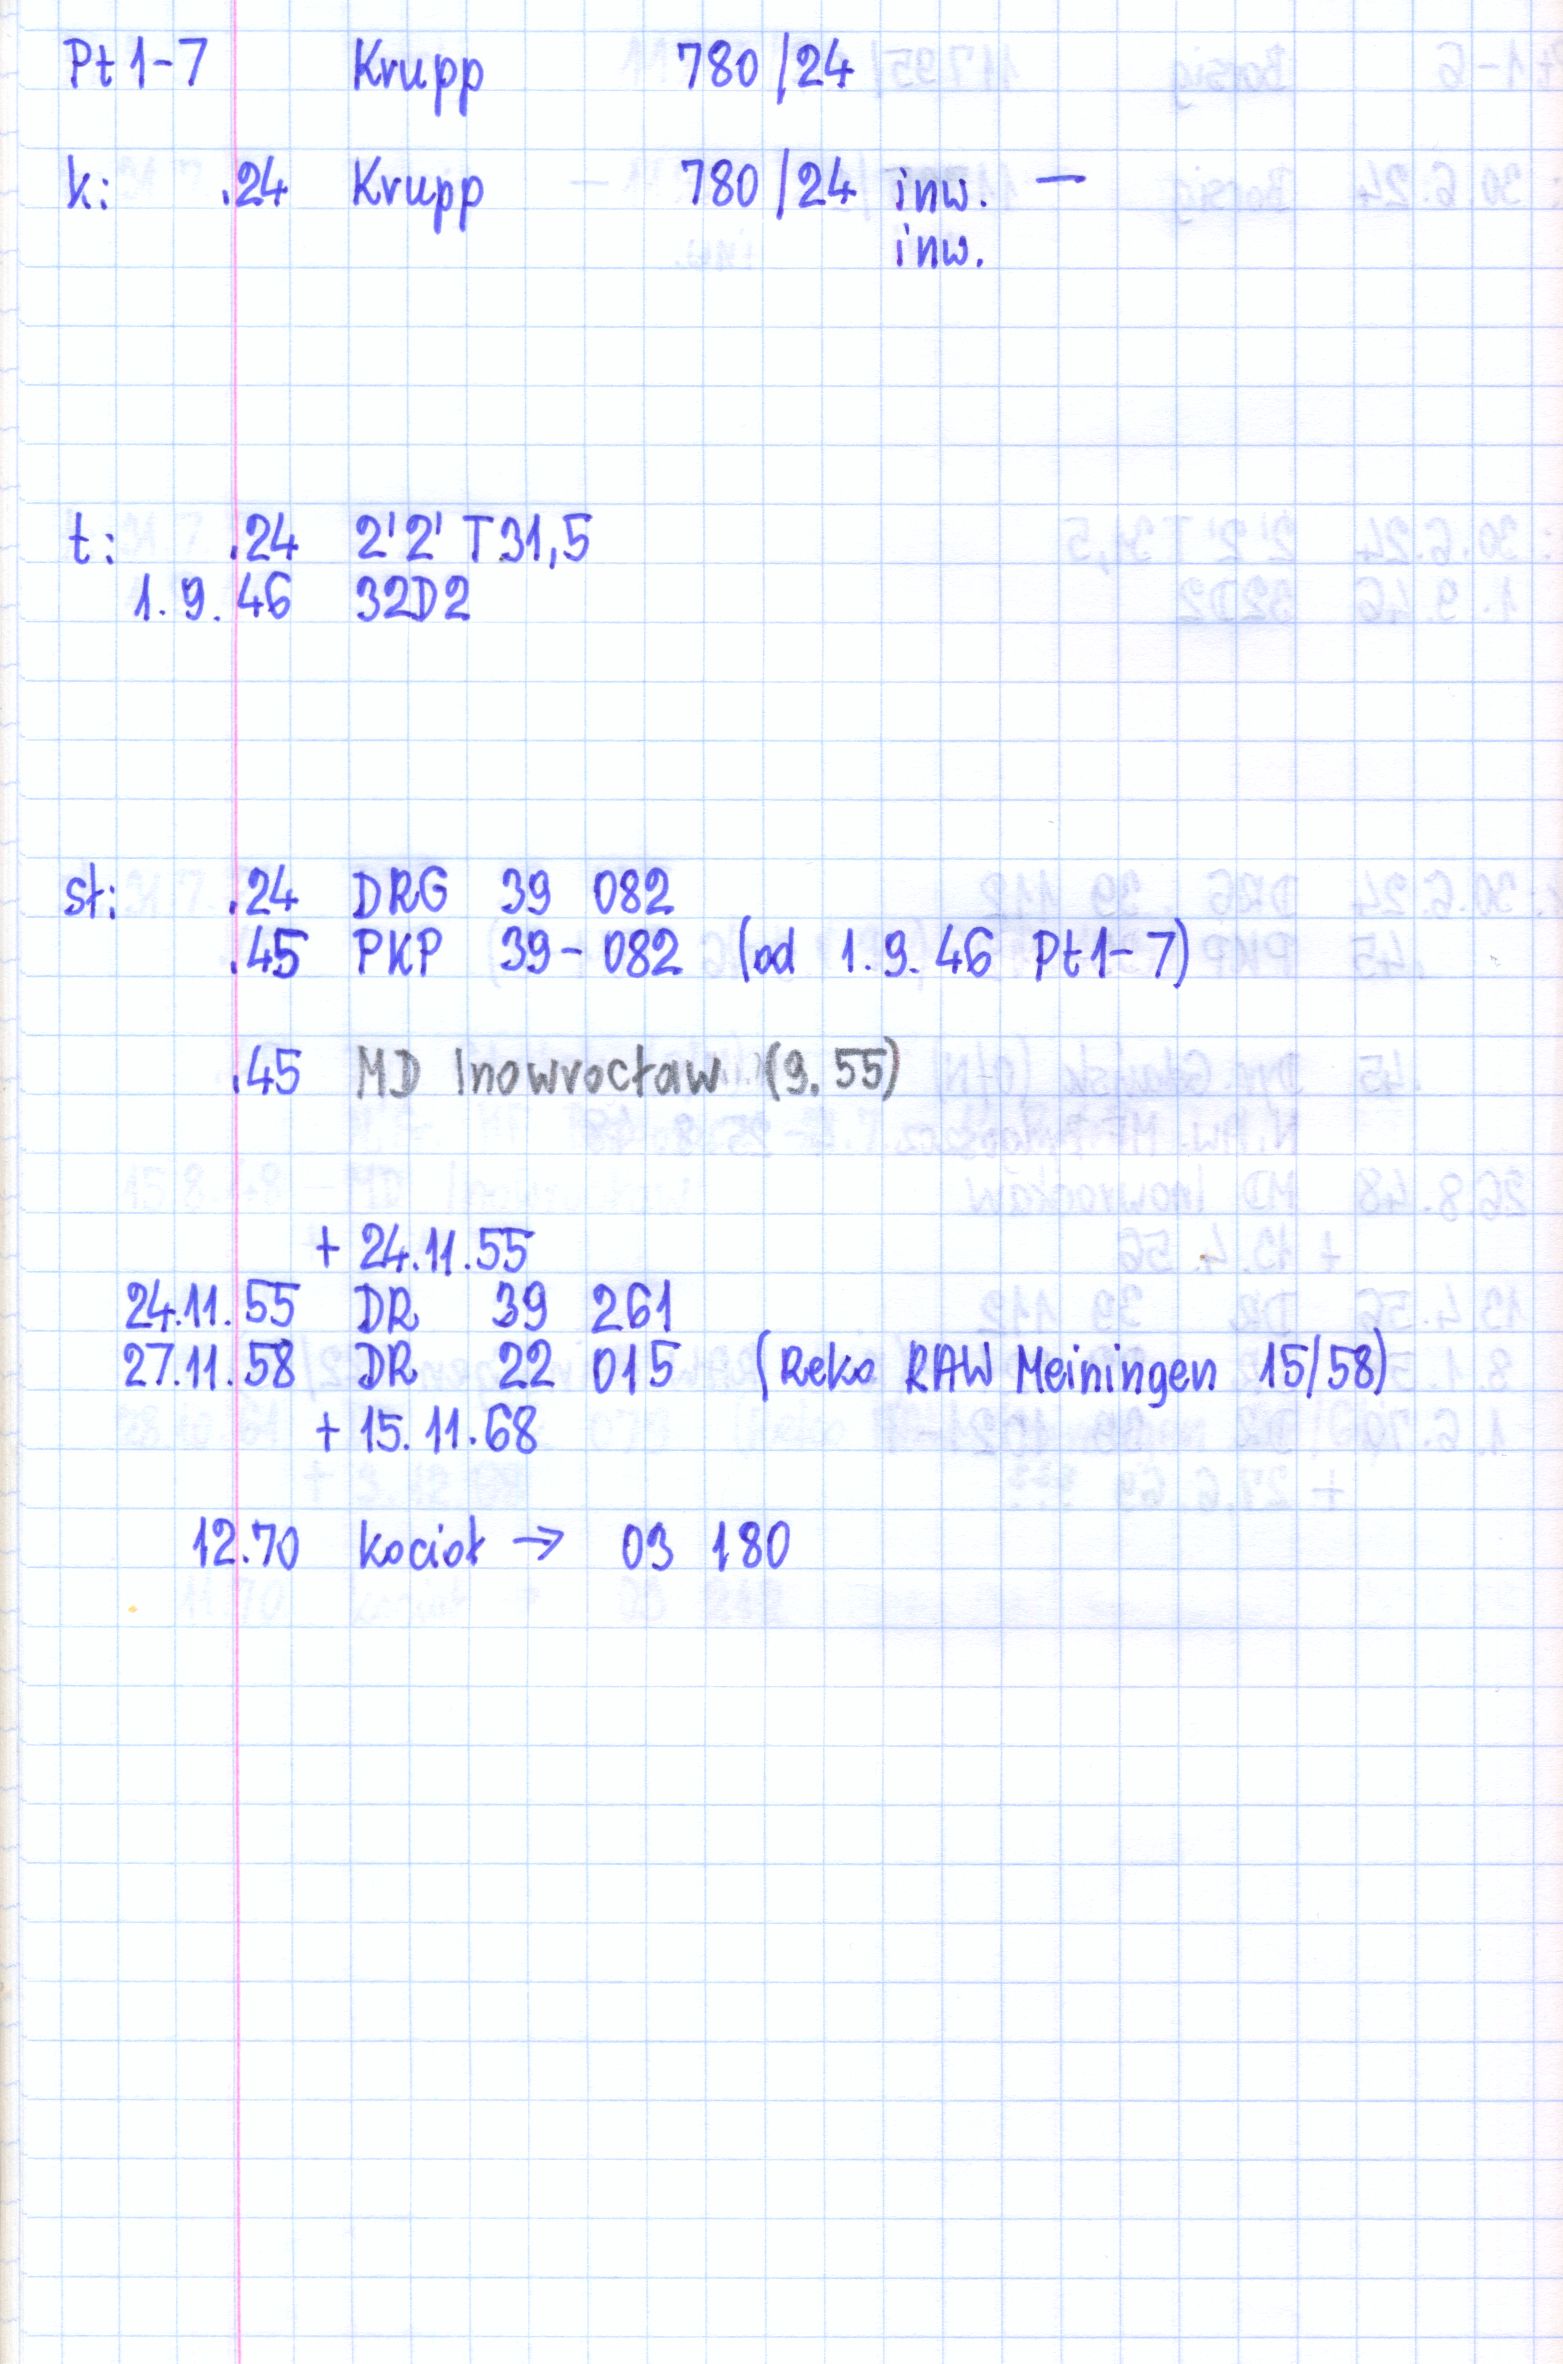 Pt 1-7 Krupp 780/24
k: .24 Krupp 780/24 inw. —
inw.
t: .24 2'2' T31,5
1.9.46 32D2
st: .24 DRG 39 082
.45 PKP 39-082 (od 1.9.46 Pt1-7)
.45 MD Inowrocław (9.55)
+ 24.11.55
24.11.55 DR 39 261
27.11.58 DR 22 015 (Reko RAW Meiningen 15/58)
+ 15.11.68
12.70 kocioł → 03 180